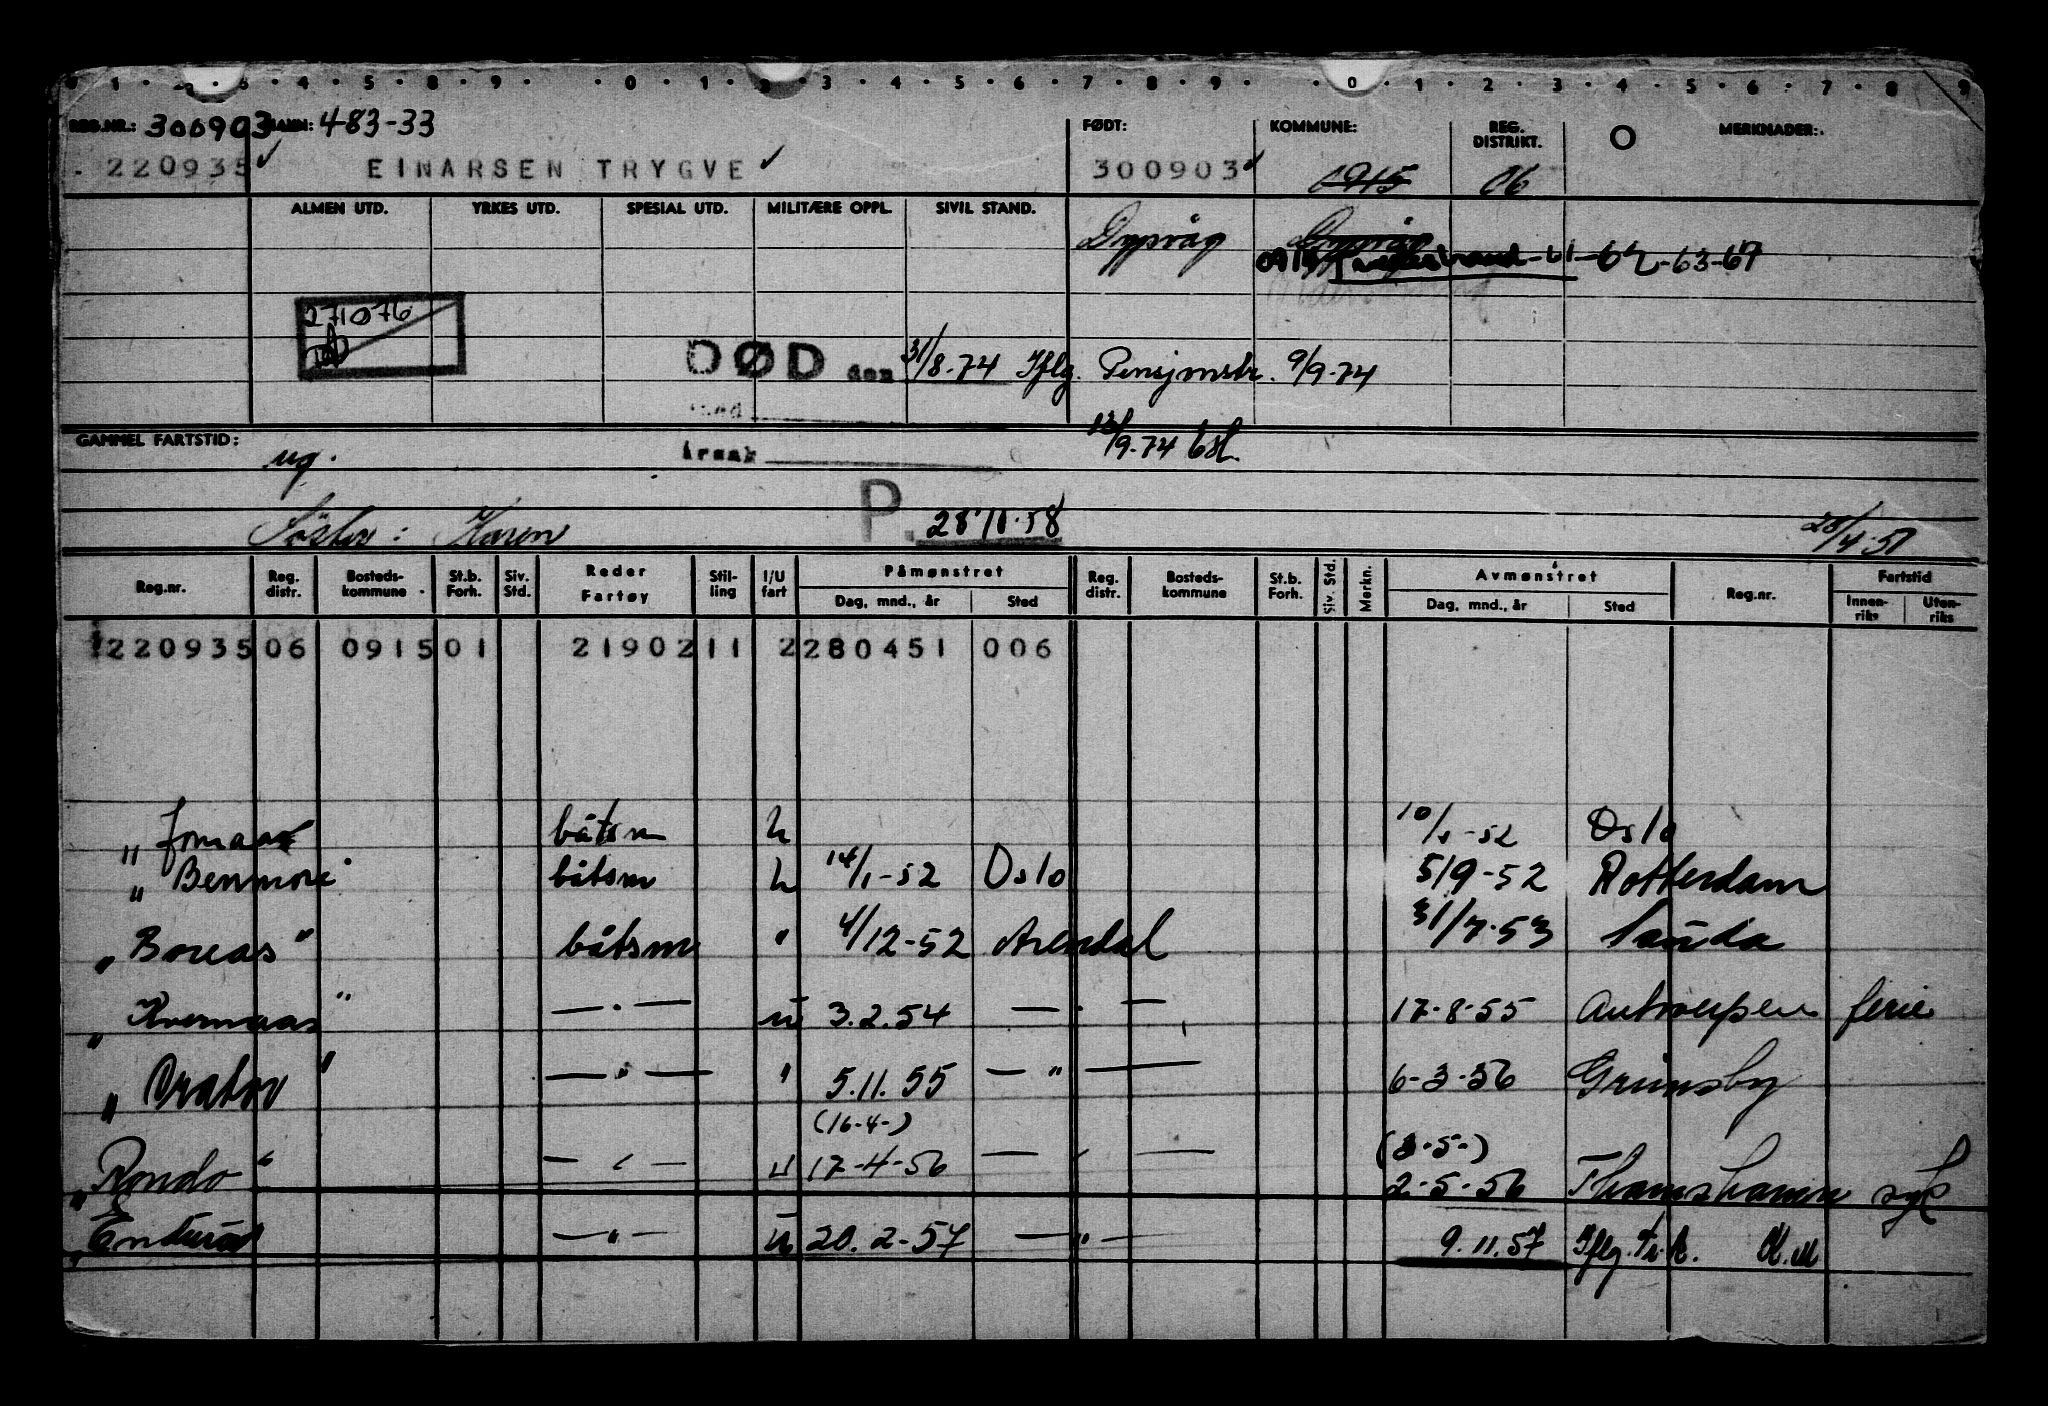 0 1 2 3 4 5 8 9 0 1 2 3 4 5 6 7 8 9 0 1 2 3 4 5 6 7 8 9
REG.NR.: 300903 NAVN: 483-33 FØDT: KOMMUNE: REG. DISTRIKT. O MERKNADER:
220935 ✓ EINARSEN TRYGVE ✓ 300903 ✓ 0915 06
ALMEN UTD. YRKES UTD. SPESIAL UTD. MILITÆRE OPPL. SIVIL STAND. Dypvåg Dypvåg
-61-62-63-67
271076
DØD den 31/8-74 Iflg. Pensjonstr. 9/9-74
ved
GAMMEL FARTSTID: ug. årsak 13/9-74 bsl.
Søster: Karen P. 28/11-58 28/4-51
Reg.nr. Reg. distr. Bosteds-kommune St.b. Forh. Siv. Std. Reder Fartøy Stil-ling I/U fart Påmønstret Dag, mnd., år Sted Reg. distr. Bosteds-kommune St.b. Forh. Siv. Std. Merkn. Avmønstret Dag, mnd., år Sted Reg.nr. Fartstid Innen-riks Uten-riks
220935 06 0915 01 21902 11 2 280451 006
" båtsm u 10/1-52 Oslo
" Benmore båtsm u 14/1-52 Oslo 5/9-52 Rotterdam
" Boreas" båtsm " 4/12-52 Arendal 31/7-53 Sauda
" Kvernaas" — " — u 3.2.54 — " — 17-8-55 Antwerpen ferie
" Orator" — " — " 5.11.55 — " — 6-3-56 Grimsby
(16-4-) (3-5-)
" Rondo" — " — u 17-4-56 — " — 2-5-56 Thamshavn syk
" — " — u 20.2-57 — " — 9.11.57 Iflg.